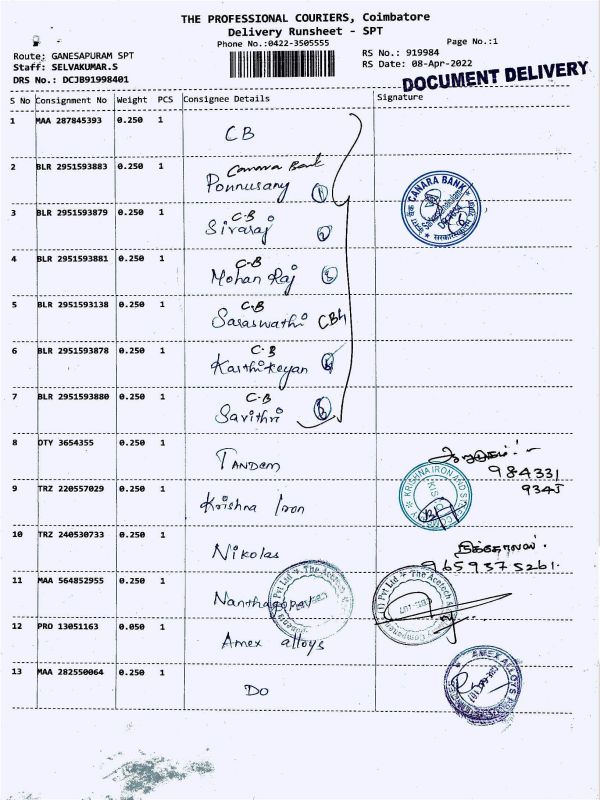 THE PROFESSIONAL COURIERS, Coimbatore
Delivery Runsheet - SPT
Phone No.:0422-3505555
Page No.:1
Route: GANESAPURAM SPT
Staff: SELVAKUMAR.S
DRS No.: DCJB91998401
RS No.: 919984
RS Date: 08-Apr-2022
DOCUMENT DELIVERY
S No Consignment No Weight PCS Consignee Details Signature
1 MAA 287845393 0.250 1 CB
2 BLR 2951593883 0.250 1 Canara Bank
Ponnusany
CANARA BANK
3 BLR 2951593879 0.250 1 C-B
Sivaraj
4 BLR 2951593881 0.250 1 C-B
Mohan Raj
5 BLR 2951593138 0.250 1 C-B
Saraswathi CBL
6 BLR 2951593878 0.250 1 C-B
Karthikeyan
7 BLR 2951593880 0.250 1 C-B
Savithri
8 DTY 3654355 0.250 1 TANDEM
984331
9345
9 TRZ 220557029 0.250 1 Krishna Iron
KRISHNA IRON AND
10 TRZ 240530733 0.250 1 Nikolas
9659375261.
11 MAA 564852955 0.250 1 Nanthagopal
The Acetech
(I) Pvt Ltd * The Acetech
12 PRO 13051163 0.050 1 Amex alloys
AMEX ALLOYS
13 MAA 282550064 0.250 1 DO